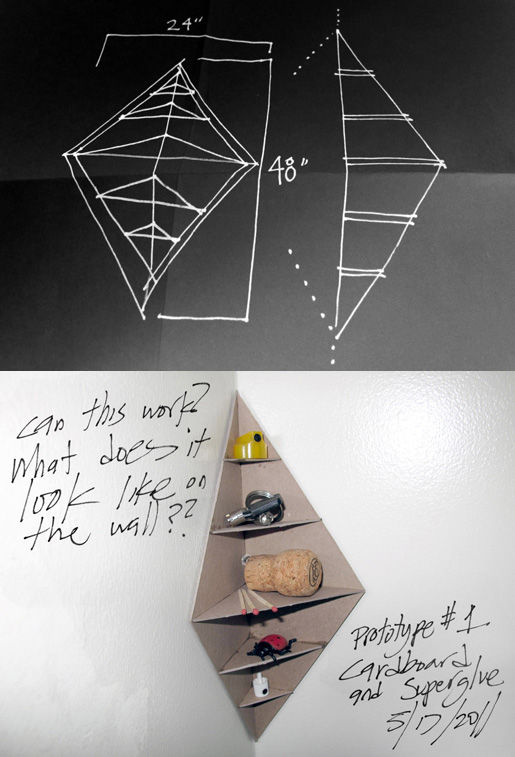 24"
48"
can this work?
what does it
look like on
the wall??
Prototype # 1
Cardboard
and Superglue
5/17/2011